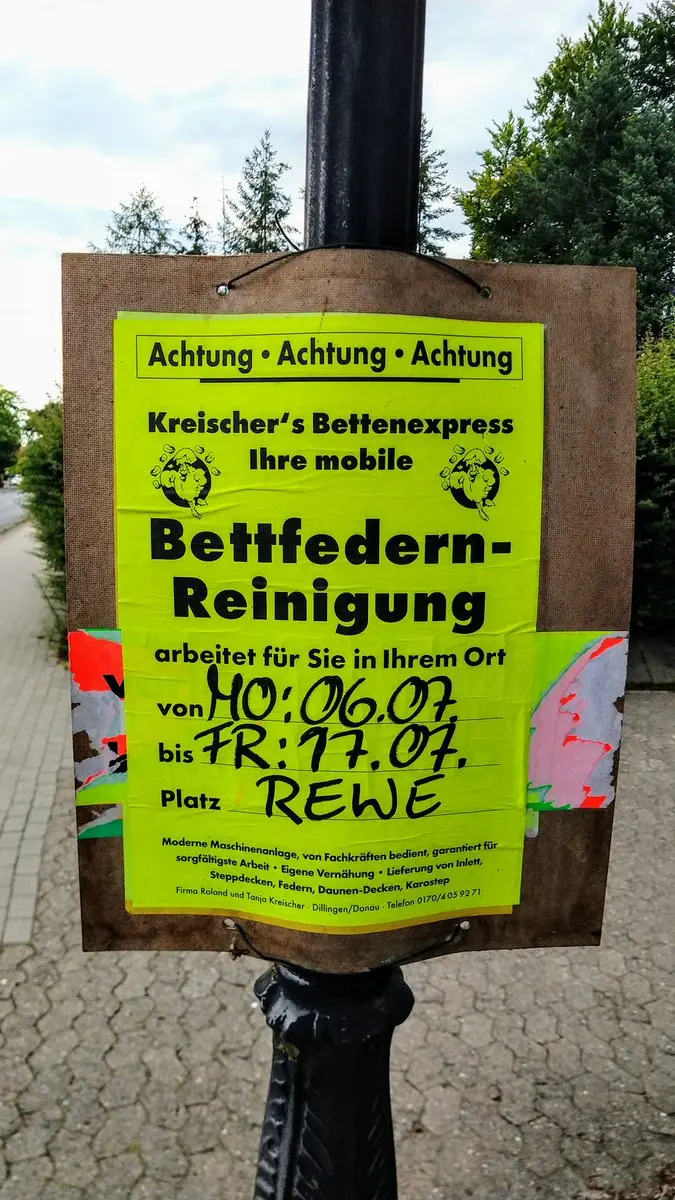 Achtung • Achtung • Achtung
Kreischer‘s Bettenexpress
Ihre mobile
Bettfedern-
Reinigung
arbeitet für Sie in Ihrem Ort
von MO: 06.07.
bis FR: 17.07.
Platz REWE
Moderne Maschinenanlage, von Fachkräften bedient, garantiert für
sorgfältigste Arbeit • Eigene Vernähung • Lieferung von Inlett,
Steppdecken, Federn, Daunen-Decken, Karostep
Firma Roland und Tanja Kreischer · Dillingen/Donau · Telefon 0170/4 05 92 71